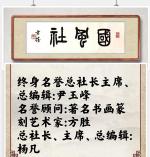 國風社
终身名誉总社长主席、
总编辑:尹玉峰
名誉顾问:著名书画篆
刻艺术家:方胜
总社长、主席、总编辑:
杨凡